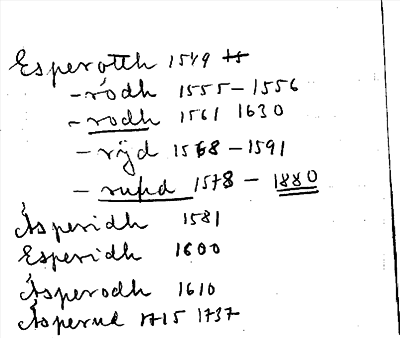 Esperötth 1549
-rödh 1555-1556
-rodh 1561 1630
-rijd 1568-1591
- 1578-1880
Åsperidh 1581
Esperidh 1600
Åsperodh 1610
Åsperud 1715 1737